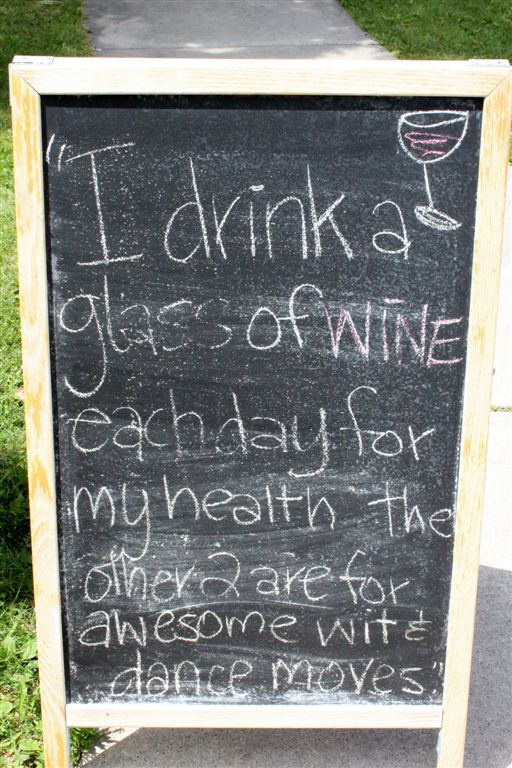 "I drink a
glass of WiNE
each day for
my health the
other 2 are for
awesome wit &
dance moves"